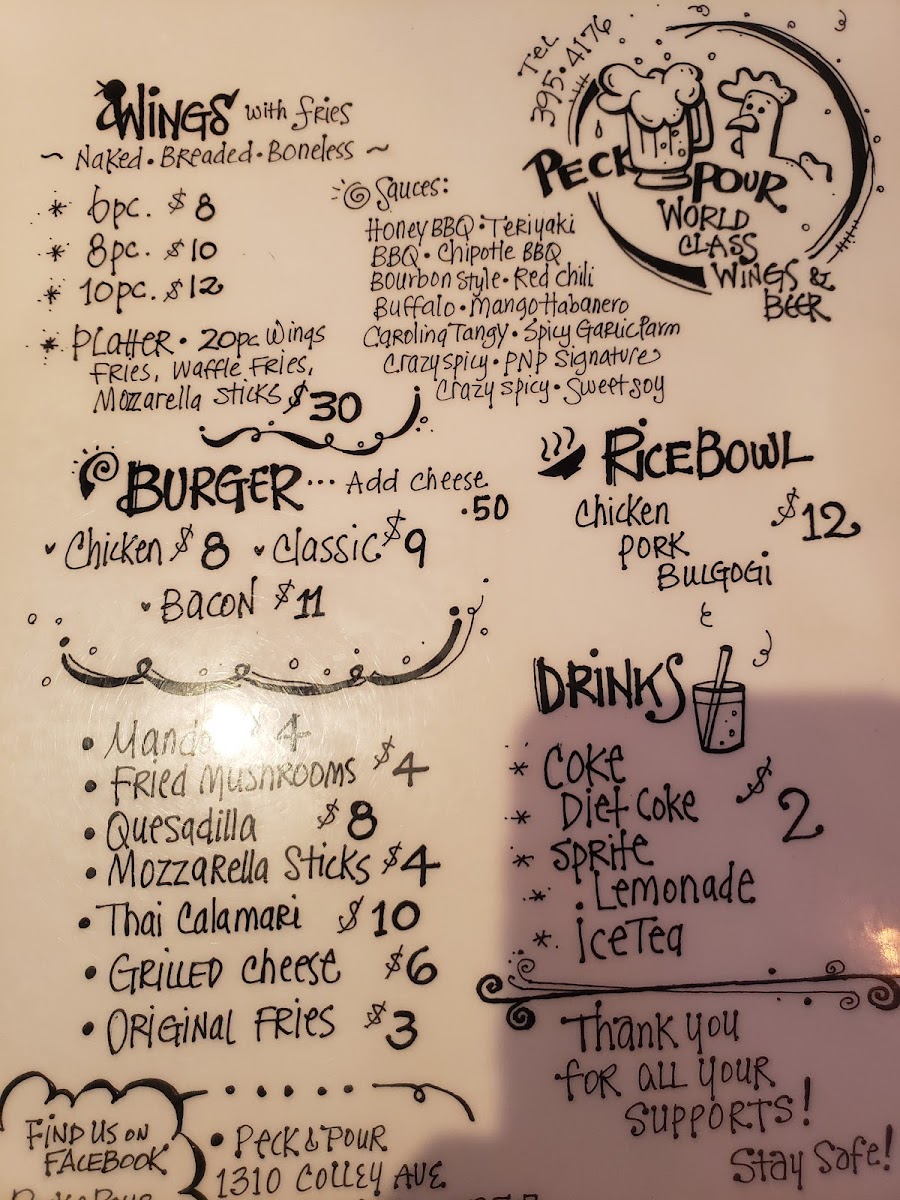 Tel.
395.4176
Peck Pour
World
Class
Wings &
Beer
Wings with fries
~ Naked • Breaded • Boneless ~
* 6pc. $8
* 8pc. $10
* 10pc. $12
* Platter • 20pc Wings
Fries, Waffle Fries,
Mozarella Sticks $30
Sauces:
Honey BBQ • Teriyaki
BBQ • Chipotle BBQ
Bourbon Style • Red Chili
Buffalo • Mango Habanero
Carolina Tangy • Spicy Garlic Parm
Crazy spicy • PNP Signature
Crazy Spicy • Sweet soy
Burger ... Add cheese
.50
Chicken $8 Classic $9
Bacon $11
Rice Bowl
Chicken $12
Pork
Bulgogi
• $4
• Fried Mushrooms $4
• Quesadilla $8
• Mozzarella Sticks $4
• Thai Calamari $10
• Grilled Cheese $6
• Original Fries $3
Drinks
* Coke $2
* Diet Coke
* Sprite
* Lemonade
* Ice Tea
Thank you
for all your
supports!
Stay Safe!
Find us on
Facebook
• Peck & Pour
1310 Colley Ave